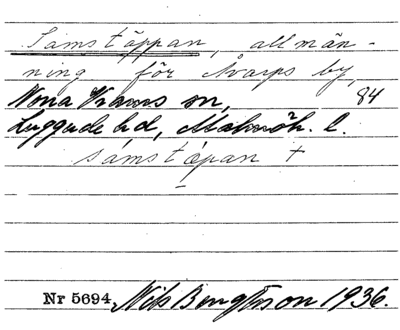 Såmstäppan, allmän-
ning för Åvarps by,
Norra Vrams sn, 84
Luggude hd, Malmöh. l.
såmstäpan +
Nr 5694. Nils Bengtsson 1936.